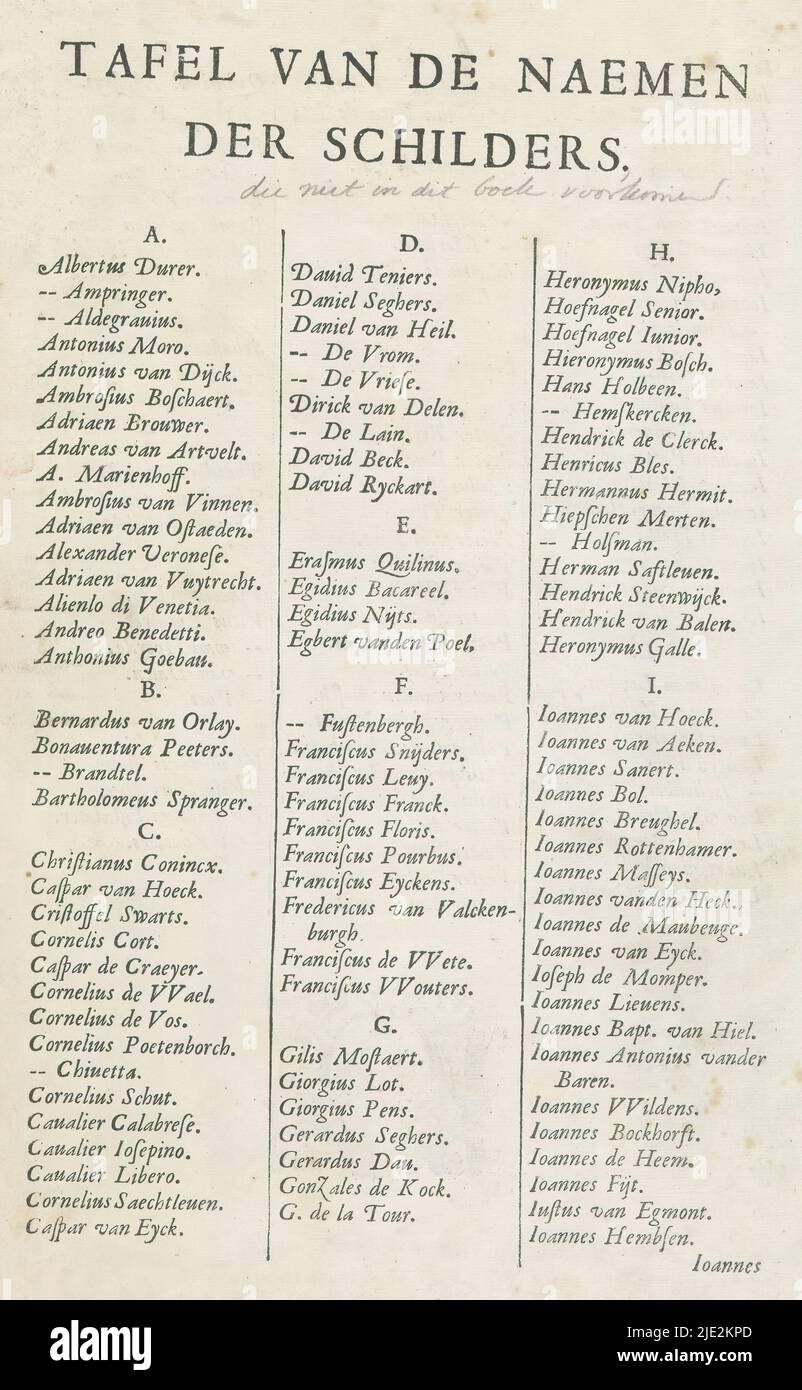 TAFEL VAN DE NAEMEN
DER SCHILDERS.
die niet in dit boek voorkomen
A.
Albertus Durer.
-- Ampringer.
-- Aldegrauius.
Antonius Moro.
Antonius van Dijck.
Ambroſius Boſchaert.
Adriaen Brouwer.
Andreas van Artvelt.
A. Marienhoff.
Ambroſius van Vinnen.
Adriaen van Oſtaeden.
Alexander Veroneſe.
Adriaen van Vuytrecht.
Alienlo di Venetia.
Andreo Benedetti.
Anthonius Goebau.
B.
Bernardus van Orlay.
Bonauentura Peeters.
-- Brandtel.
Bartholomeus Spranger.
C.
Chriſtianus Conincx.
Caſpar van Hoeck.
Criſtoffel Swarts.
Cornelis Cort.
Caſpar de Craeyer.
Cornelius de VVael.
Cornelius de Vos.
Cornelius Poetenborch.
-- Chiuetta.
Cornelius Schut.
Caualier Calabreſe.
Caualier Ioſepino.
Caualier Libero.
Cornelius Saechtleuen.
Caſpar van Eyck.
D.
Dauid Teniers.
Daniel Seghers.
Daniel van Heil.
-- De Vrom.
-- De Vrieſe.
Dirick van Delen.
-- De Lain.
David Beck.
David Ryckart.
E.
Eraſmus Quilinus.
Egidius Bacareel.
Egidius Nijts.
Egbert vanden Poel.
F.
-- Fuſtenbergh.
Franciſcus Snijders.
Franciſcus Leuy.
Franciſcus Franck.
Franciſcus Floris.
Franciſcus Pourbus.
Franciſcus Eyckens.
Fredericus van Valcken-
burgh.
Franciſcus de VVete.
Franciſcus VVouters.
G.
Gilis Moſtaert.
Giorgius Lot.
Giorgius Pens.
Gerardus Seghers.
Gerardus Dau.
Gonzales de Kock.
G. de la Tour.
H.
Heronymus Nipho,
Hoefnagel Senior.
Hoefnagel Iunior.
Hieronymus Boſch.
Hans Holbeen.
-- Hemſkercken.
Hendrick de Clerck.
Henricus Bles.
Hermannus Hermit.
Hiepſchen Merten.
-- Holſman.
Herman Saftleuen.
Hendrick Steenwijck.
Hendrick van Balen.
Heronymus Galle.
I.
Ioannes van Hoeck.
Ioannes van Aeken.
Ioannes Sanert.
Ioannes Bol.
Ioannes Breughel.
Ioannes Rottenhamer.
Ioannes Maſſeys.
Ioannes vanden Heck.
Ioannes de Maubeuge.
Ioannes van Eyck.
Ioſeph de Momper.
Ioannes Lieuens.
Ioannes Bapt. van Hiel.
Ioannes Antonius vander
Baren.
Ioannes VVildens.
Ioannes Bockhorſt.
Ioannes de Heem.
Ioannes Fijt.
Iuſtus van Egmont.
Ioannes Hembſen.
Ioannes
alamy
Image ID: 2JE2KPD
www.alamy.com